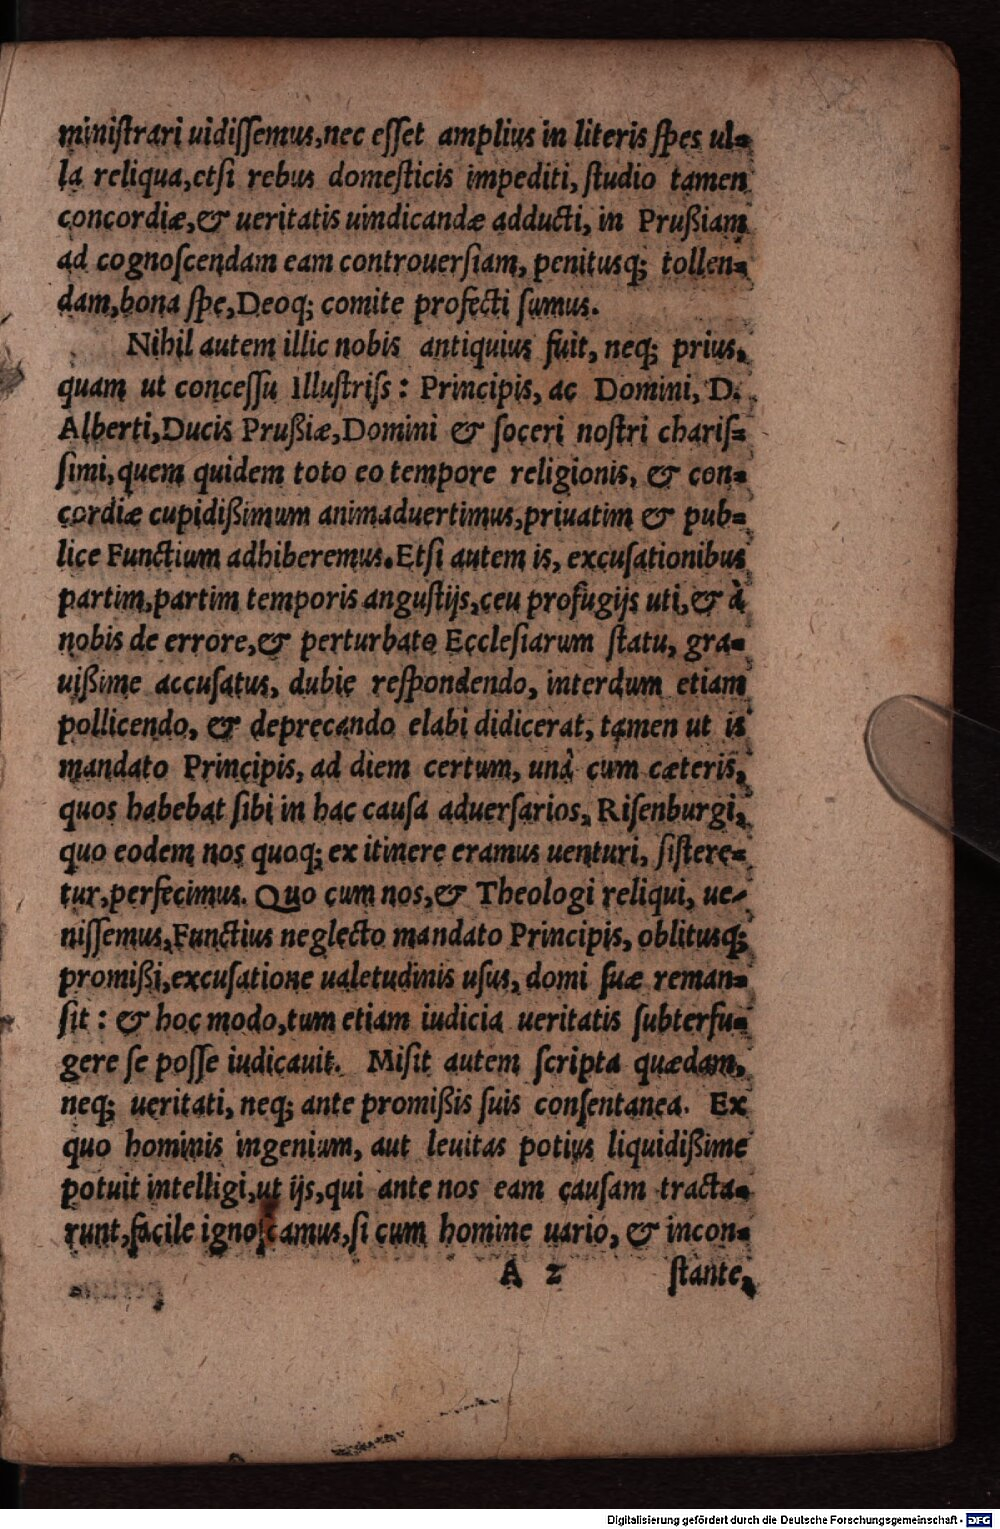 miniſtrari uidiſſemus,nec eſſet amplius in literis ſpes ul=
la reliqua,etſi rebus domeſticis impediti, ſtudio tamen
concordiæ,& ueritatis uindicandæ adducti, in Prußiam
ad cognoſcendam eam controuerſiam, penitusq; tollen=
dam,bona ſpe,Deoq; comite profecti ſumus.
Nihil autem illic nobis antiquius fuit, neq; prius,
quam ut conceſſu Illuſtriſs: Principis, ac Domini, D.
Alberti,Ducis Prußiæ,Domini & ſoceri noſtri chariſ=
ſimi,quem quidem toto eo tempore religionis, & con=
cordiæ cupidißimum animaduertimus,priuatim & pub=
lice Functium adhiberemus.Etſi autem is, excuſationibus
partim,partim temporis anguſtijs,ceu profugijs uti,& à
nobis de errore,& perturbato Eccleſiarum ſtatu, gra=
uißime accuſatus, dubie reſpondendo, interdum etiam
pollicendo, & deprecando elabi didicerat, tamen ut is
mandato Principis, ad diem certum, unà cum cæteris,
quos habebat ſibi in hac cauſa aduerſarios, Riſenburgi,
quo eodem nos quoq; ex itinere eramus uenturi, ſiſtere=
tur,perfecimus. Quo cum nos,& Theologi reliqui, ue=
niſſemus,Functius neglecto mandato Principis, oblitusq;
promißi,excuſatione ualetudinis uſus, domi ſuæ reman=
ſit: & hoc modo,tum etiam iudicia ueritatis ſubterfu=
gere ſe poſſe iudicauit. Miſit autem ſcripta quædam,
neq; ueritati, neq; ante promißis ſuis conſentanea. Ex
quo hominis ingenium, aut leuitas potius liquidißime
potuit intelligi,ut ijs,qui ante nos eam cauſam tracta=
runt,facile ignoſcamus,ſi cum homine uario, & incon=
A 2 ſtante,
Digitalisierung gefördert durch die Deutsche Forschungsgemeinschaft - DFG